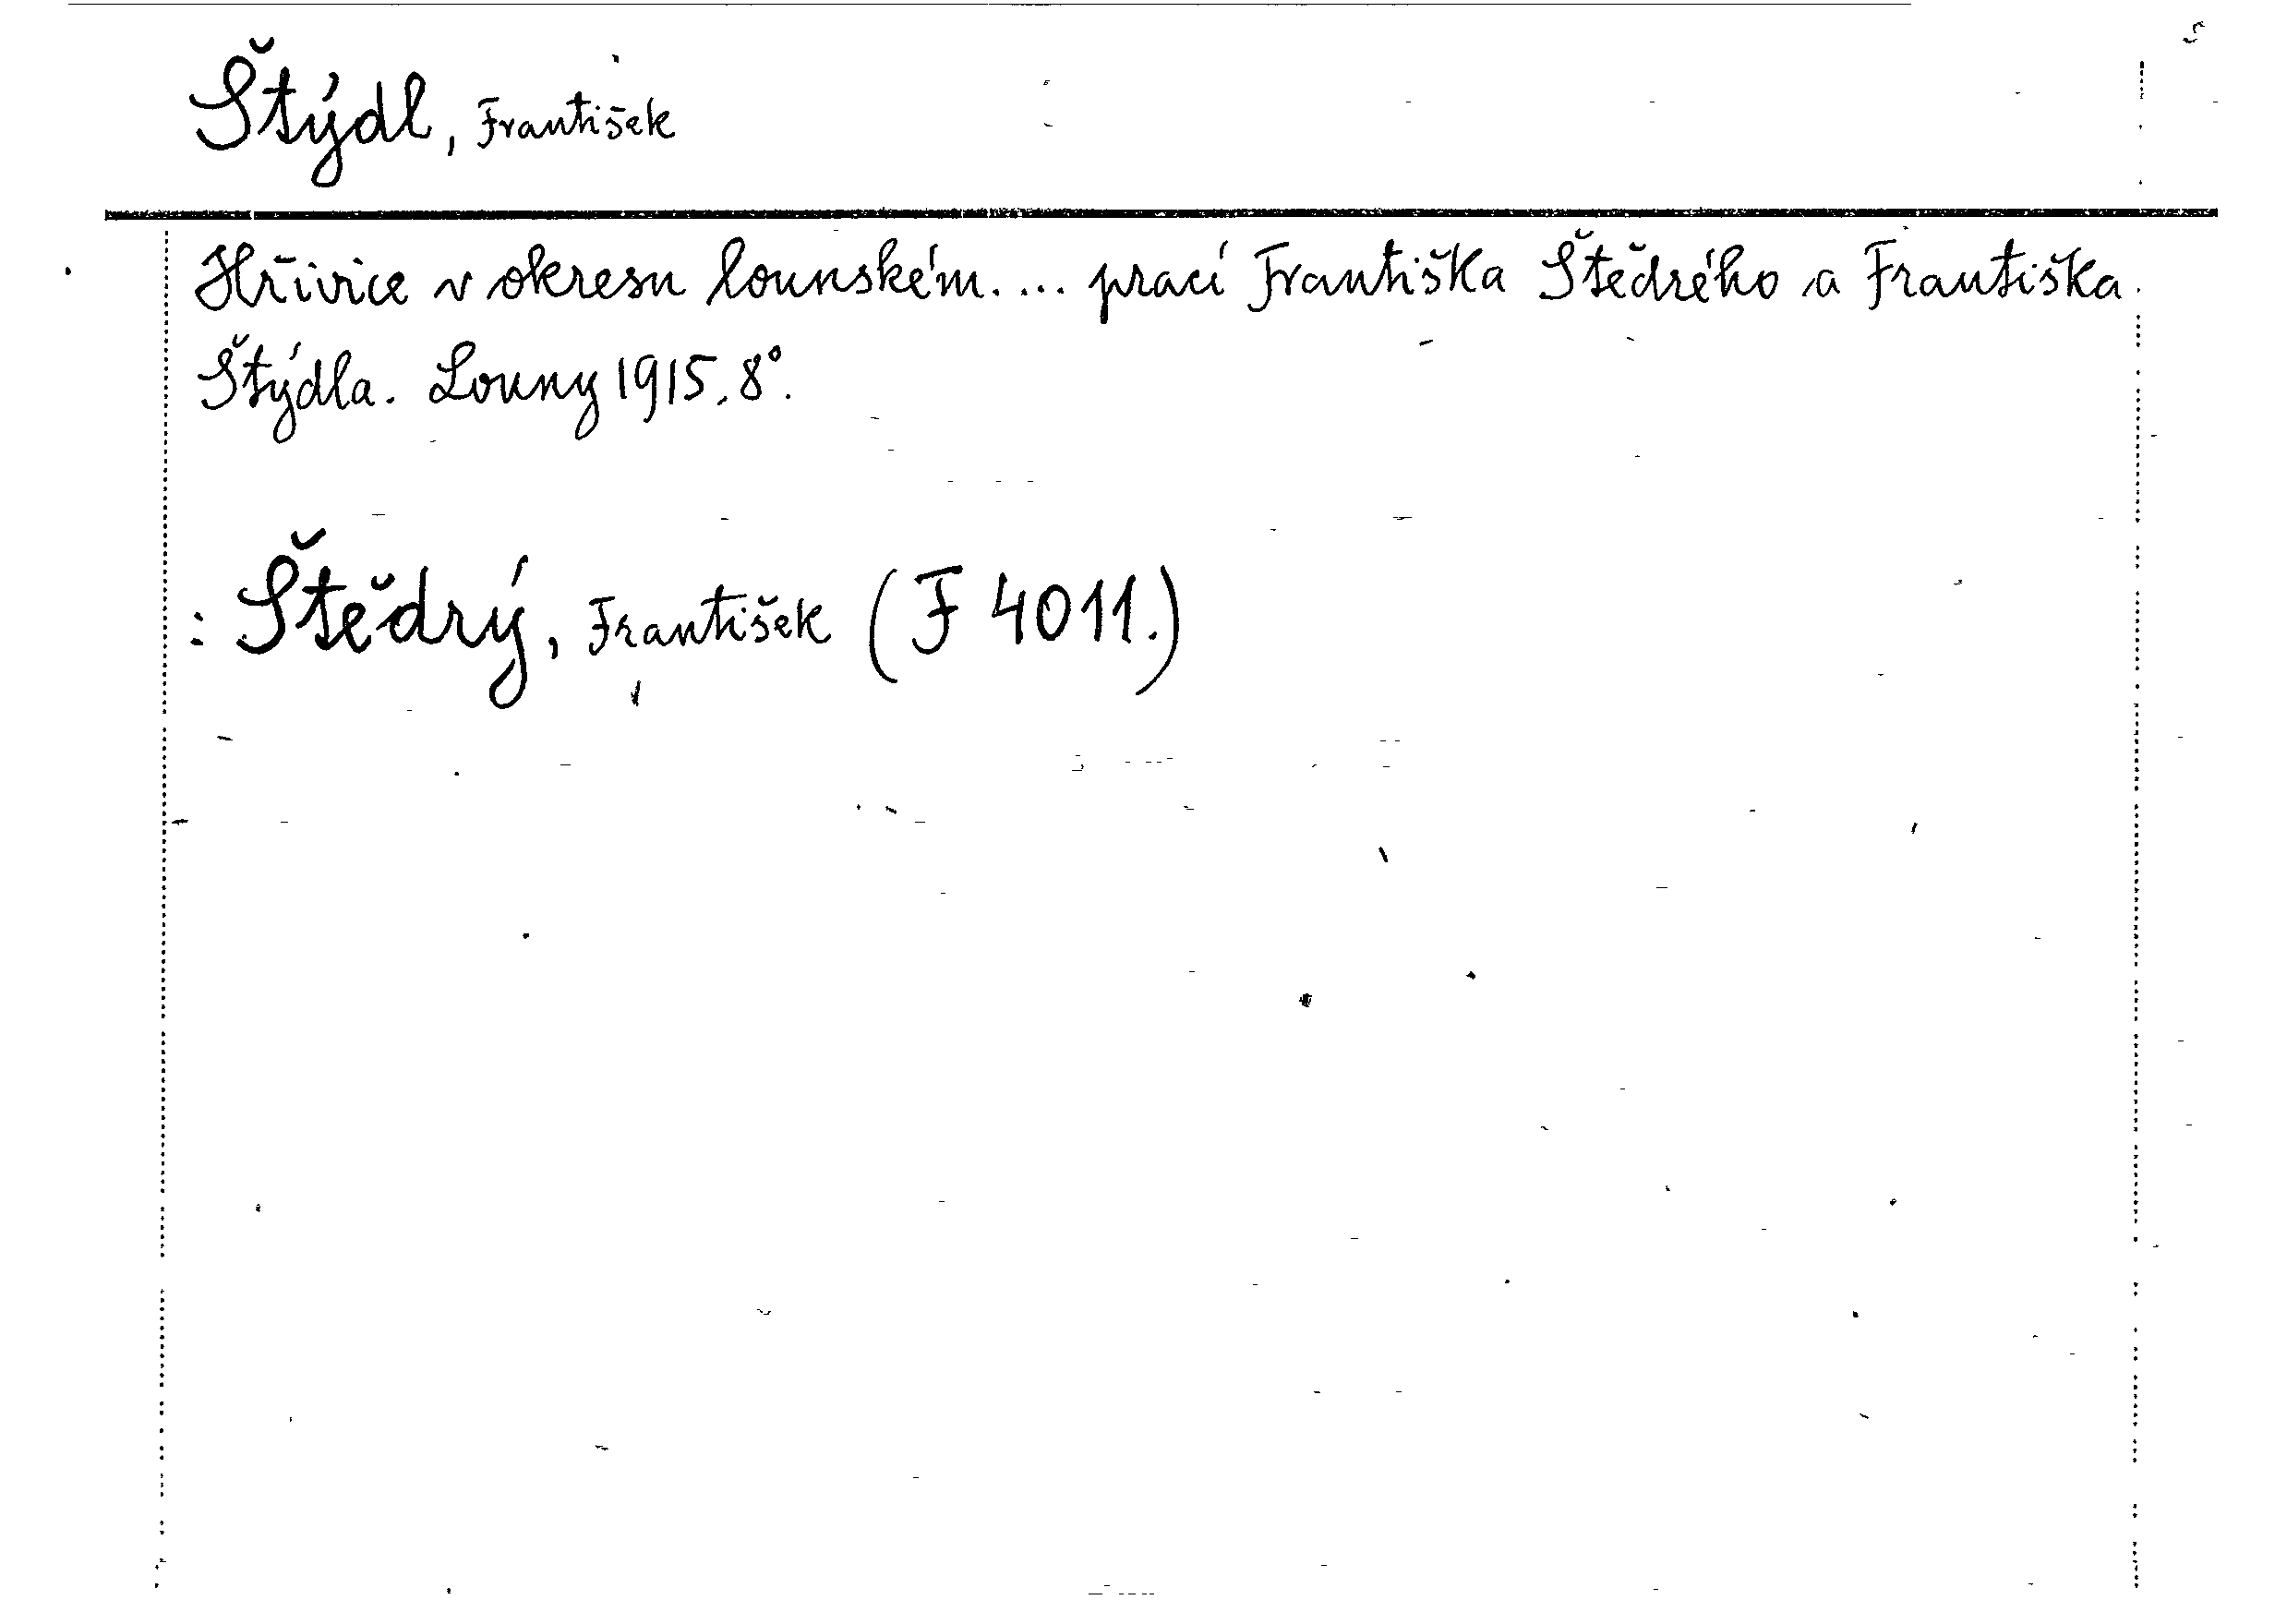 Štýdl, František
Hřivice v okresu lounském. ... prací Františka Štědrého a Františka
Štýdla. Louny 1915, 8°.
: Štědrý, František (F 4011.)